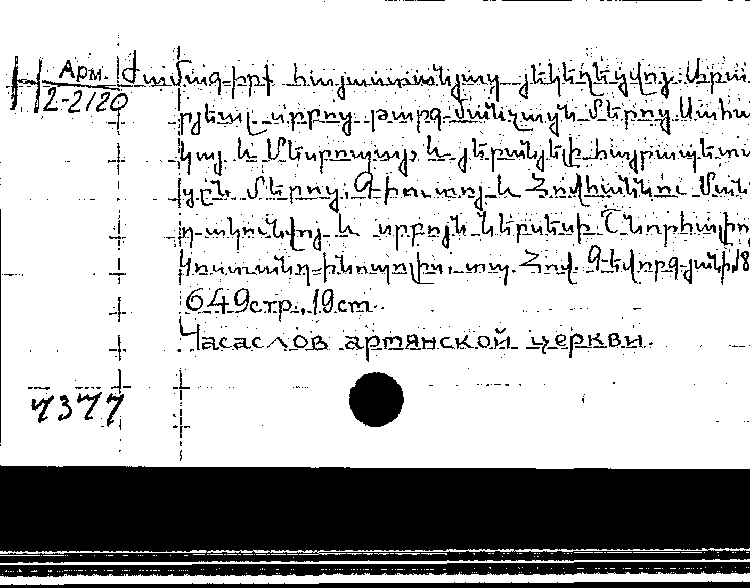 Арм.
2-2120
Ժամագիրք հայաստանեայց եկեղեցւոյ. Արա
րեալ սրբոց թարգմանչացն մերոց Սահա
կայ և Մեսրոպայ, և երանելի հայրապետա
ցըն մերոց, Գիւտոյ և Յովհաննու Ման
դակունւոյ և սրբոյն Ներսեսի Շնորհալիոյ
Կոստանդինուպոլիս, տպ. Յով. Գէվորգյանի, 18
649стр., 10ст.
Часаслов армянской церкви.
7377